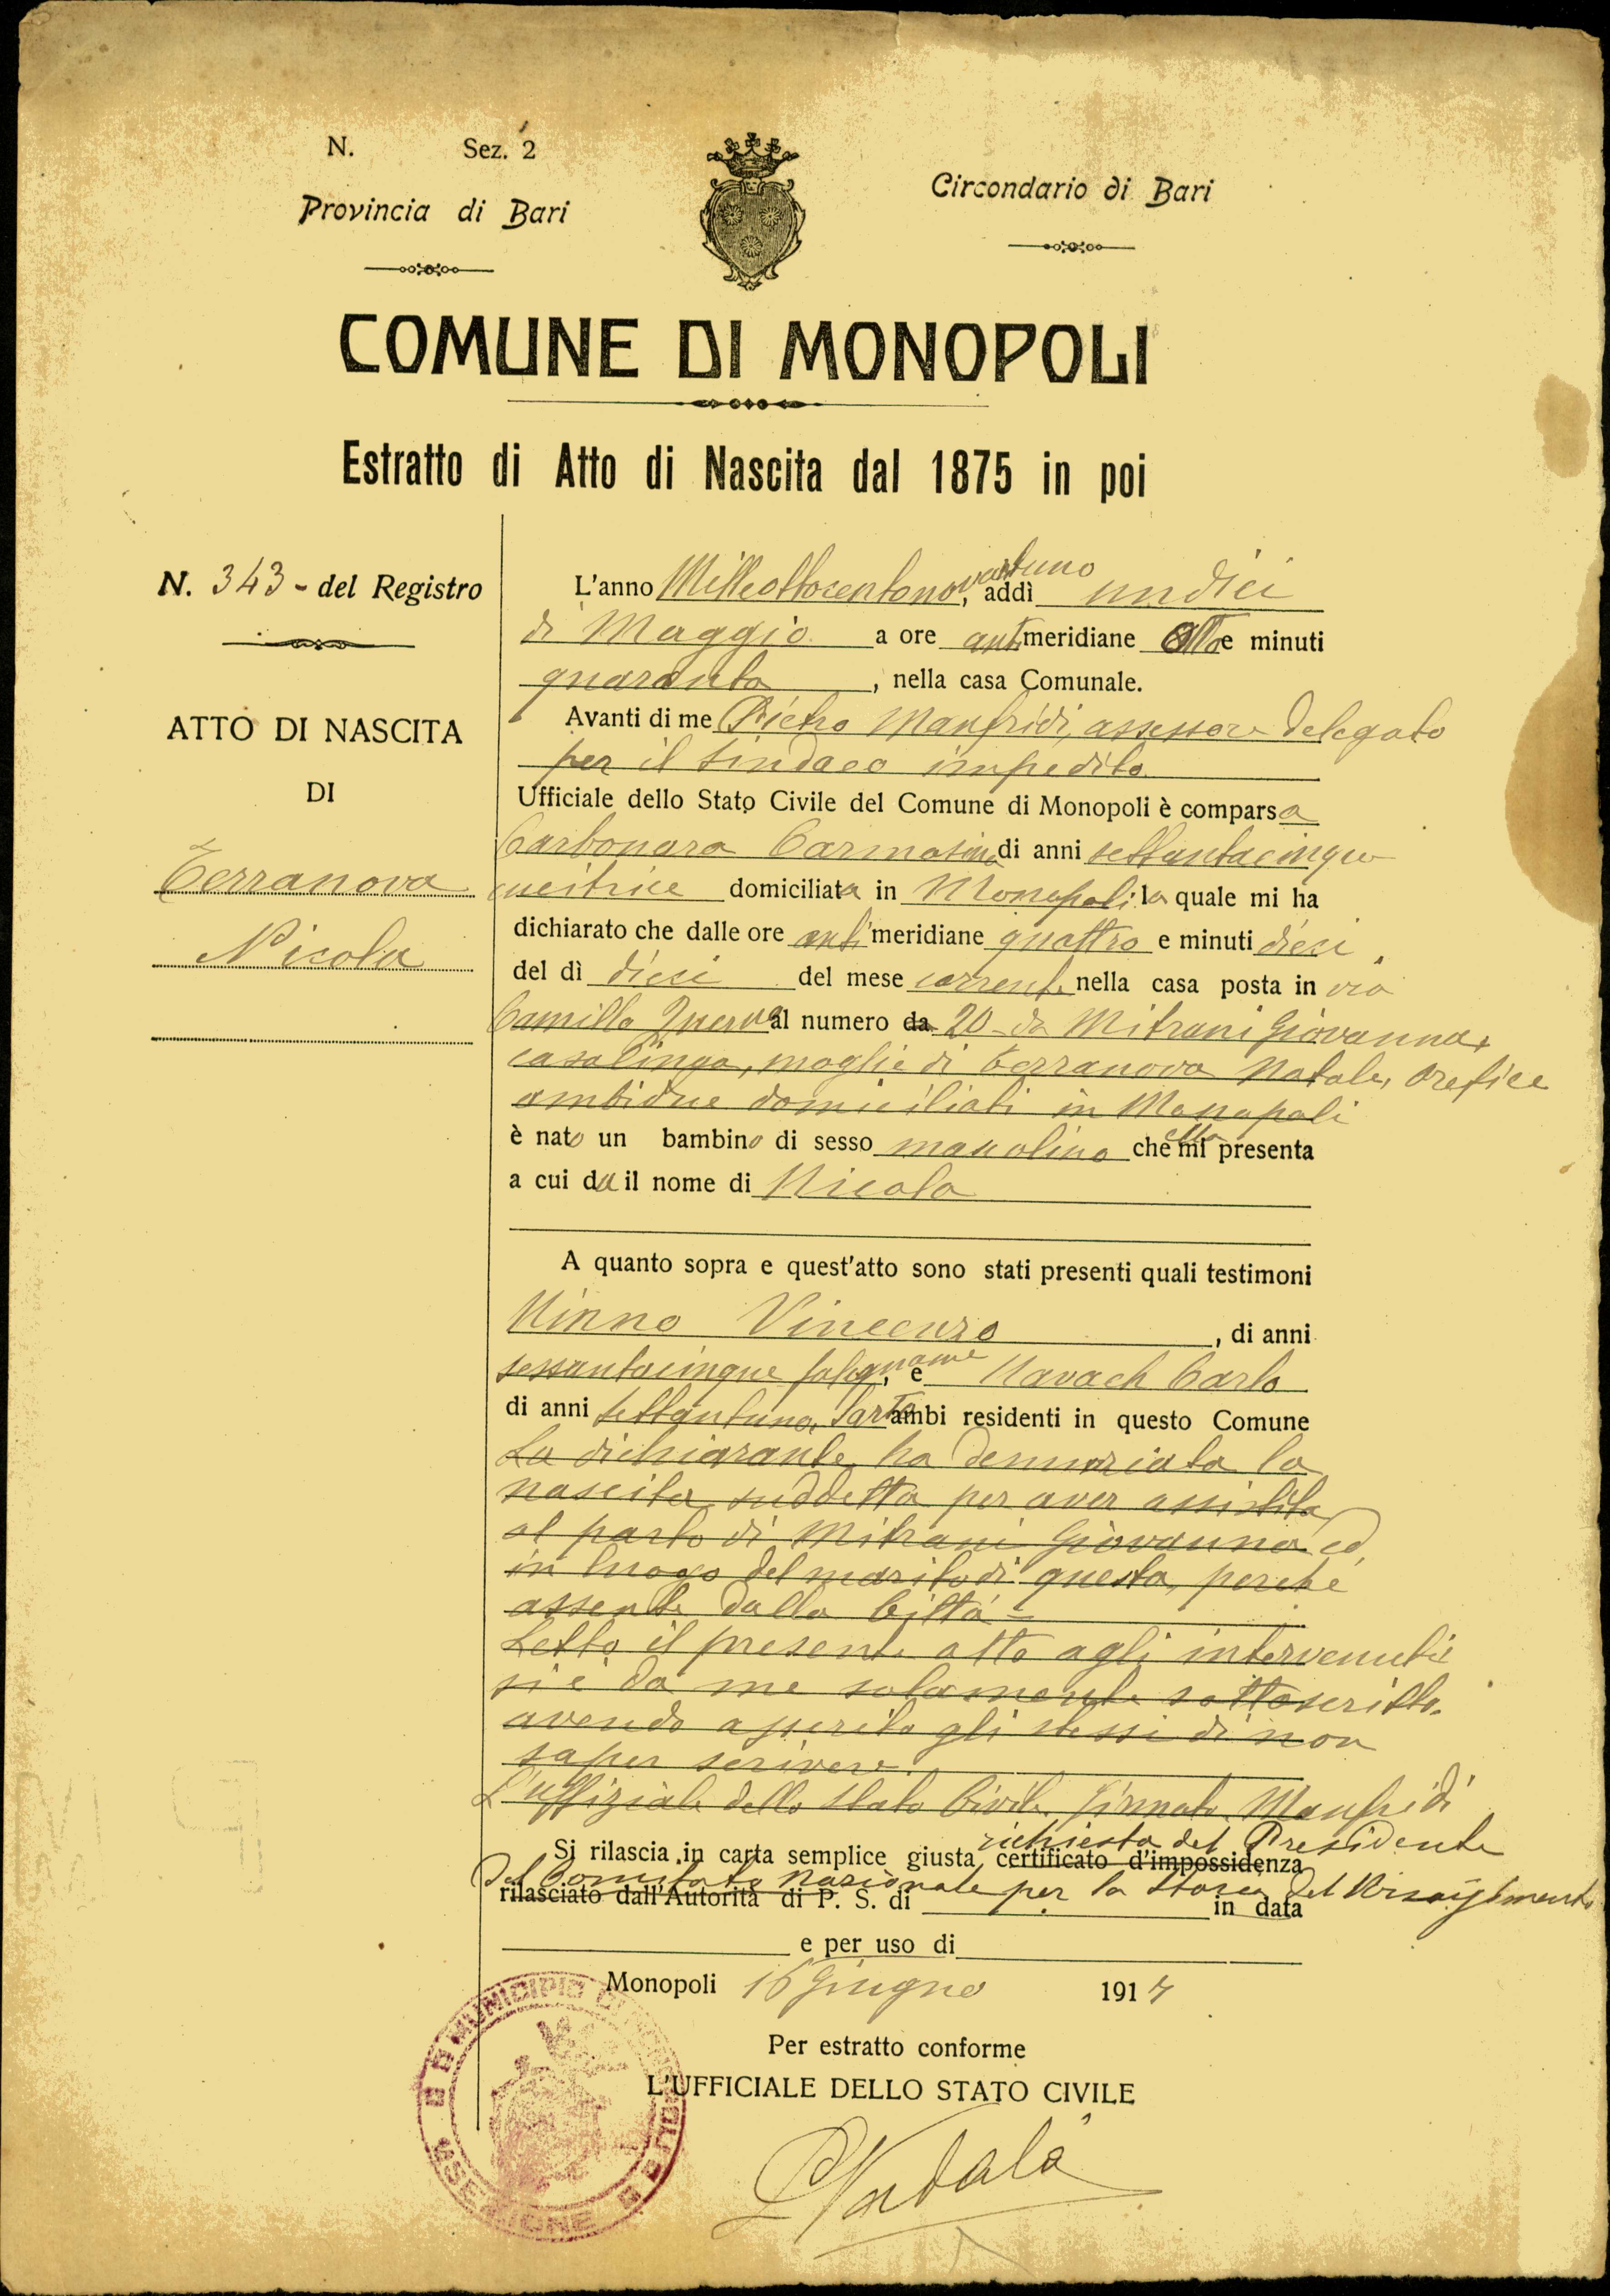 N. Sez. 2
Provincia di Bari
Circondario di Bari
COMUNE DI MONOPOLI
Estratto di Atto di Nascita dal 1875 in poi
N. 343 - del Registro
ATTO DI NASCITA
DI
Terranova
Nicola
L'anno Milleottocentonovantuno, addì undici
di Maggio a ore antimeridiane Otto e minuti
quaranta, nella casa Comunale.
Avanti di me Pietro Manfridi, assessore delegato
per il Sindaco impedito
Ufficiale dello Stato Civile del Comune di Monopoli è comparsa
Carbonara Carmosina di anni settantacinque
cucitrice domiciliata in Monopoli la quale mi ha
dichiarato che dalle ore antimeridiane quattro e minuti dieci,
del dì dieci del mese corrente nella casa posta in via
Camillo Querno al numero da 20 - da Mitrani Giovanna,
casalinga, moglie di Terranova Natale, orefice
ambidue domiciliati in Monopoli
è nato un bambino di sesso mascolino che ella mi presenta
a cui da il nome di Nicola
A quanto sopra e quest'atto sono stati presenti quali testimoni
Ninno Vincenzo, di anni
sessantacinque falegname, e Navach Carlo
di anni settantuno, Sarto ambi residenti in questo Comune
La dichiarante ha denunziata la
nascita suddetta per aver assistito
al parto di Mitrani Giovanna ed
in luogo del marito di questa, perché
assente dalla Città =
Letto il presente atto agli intervenuti
si è da me solamente sottoscritto,
avendo asserito gli stessi di non
saper scrivere.
L'uffiziale dello Stato Civile Firmato Manfridi
richiesta del Presidente
Si rilascia in carta semplice giusta certificato d'impossidenza
del Comitato Nazionale per la Storia del Risorgimento
rilasciato dall'Autorità di P. S. di in data
e per uso di
Monopoli 16 Giugno 1917
Per estratto conforme
L'UFFICIALE DELLO STATO CIVILE
MUNICIPIO DI
SEZIONE